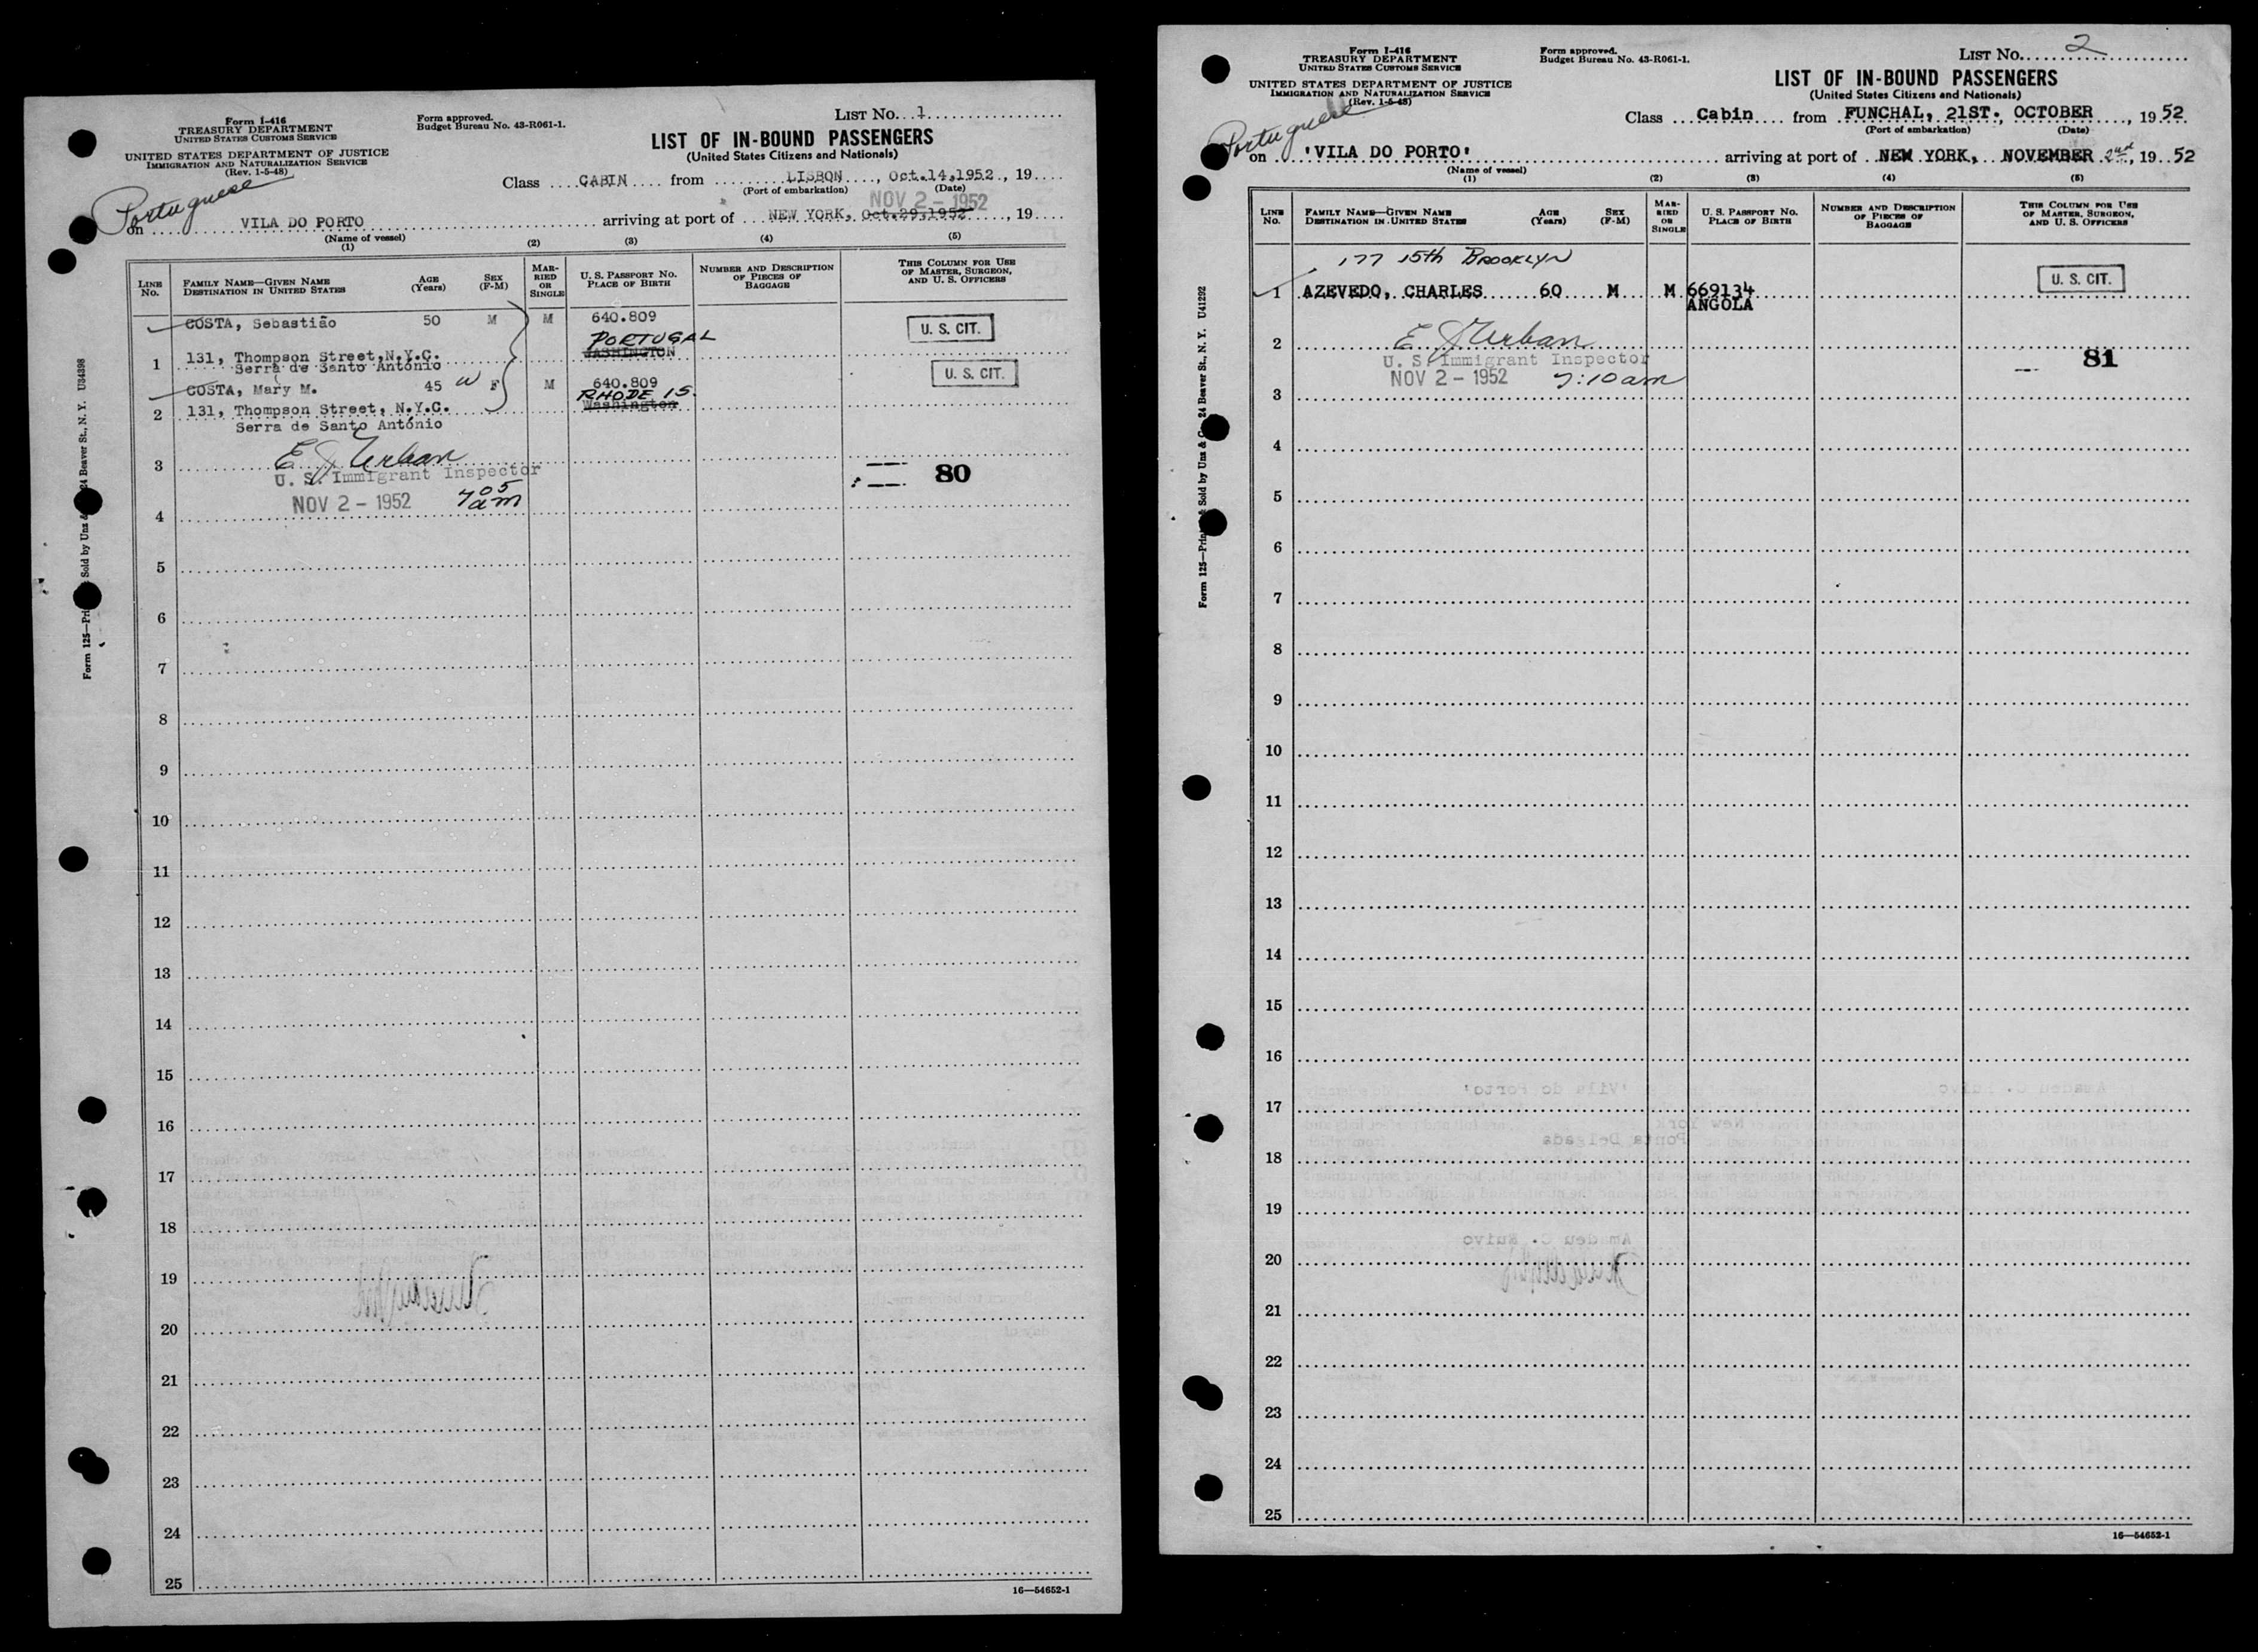 Form I-416
TREASURY DEPARTMENT
UNITED STATES CUSTOMS SERVICE
UNITED STATES DEPARTMENT OF JUSTICE
IMMIGRATION AND NATURALIZATION SERVICE
(Rev. 1-5-48)
Form approved.
Budget Bureau No. 43-R061-1.
LIST No. 1
LIST OF IN-BOUND PASSENGERS
(United States Citizens and Nationals)
Class CABIN from LISBON, Oct.14,1952., 19
(Port of embarkation) (Date)
Portuguese
NOV 2 - 1952
on VILA DO PORTO arriving at port of NEW YORK, Oct.29,1952, 19
(Name of vessel)
(1) (2) (3) (4) (5)
LINE No.
FAMILY NAME—GIVEN NAME
DESTINATION IN UNITED STATES
AGE (Years)
SEX (F-M)
MARRIED OR SINGLE
U. S. PASSPORT No.
PLACE OF BIRTH
NUMBER AND DESCRIPTION OF PIECES OF BAGGAGE
THIS COLUMN FOR USE OF MASTER, SURGEON, AND U. S. OFFICERS
COSTA, Sebastião 50 M M 640.809 U. S. CIT.
PORTUGAL
WASHINGTON
1 131, Thompson Street,N.Y.C.
Serra de Santo António
U. S. CIT.
COSTA, Mary M. 45 W F M 640.809
RHODE IS.
2 131, Thompson Street, N.Y.C. Washington
Serra de Santo António
3 E J Urban
U. S. Immigrant Inspector
80
4 NOV 2 - 1952 7 05 am
5
6
7
8
9
10
11
12
13
14
15
16
17
18
19
20
21
22
23
24
25
16—54652-1
Form 125—Pri Sold by Unz & 24 Beaver St., N. Y. U34398
Form I-416
TREASURY DEPARTMENT
UNITED STATES CUSTOMS SERVICE
UNITED STATES DEPARTMENT OF JUSTICE
IMMIGRATION AND NATURALIZATION SERVICE
(Rev. 1-5-48)
Form approved.
Budget Bureau No. 43-R061-1.
LIST No. 2
LIST OF IN-BOUND PASSENGERS
(United States Citizens and Nationals)
Class Cabin from FUNCHAL, 21ST. OCTOBER, 19 52
(Port of embarkation) (Date)
Portuguese
on 'VILA DO PORTO' arriving at port of NEW YORK, NOVEMBER 2nd, 19 52
(Name of vessel)
(1) (2) (3) (4) (5)
LINE No.
FAMILY NAME—GIVEN NAME
DESTINATION IN UNITED STATES
AGE (Years)
SEX (F-M)
MARRIED OR SINGLE
U. S. PASSPORT No.
PLACE OF BIRTH
NUMBER AND DESCRIPTION OF PIECES OF BAGGAGE
THIS COLUMN FOR USE OF MASTER, SURGEON, AND U. S. OFFICERS
177 15th BROOKLYN
U. S. CIT.
1 AZEVEDO, CHARLES 60 M M 669134
ANGOLA
2 E J Urban
U. S. Immigrant Inspector
81
NOV 2 - 1952 7:10am
3
4
5
6
7
8
9
10
11
12
13
14
15
16
17
18
19
20
21
22
23
24
25
16—54652-1
Form 125—Prin & Sold by Unz & C 24 Beaver St., N. Y. U41292